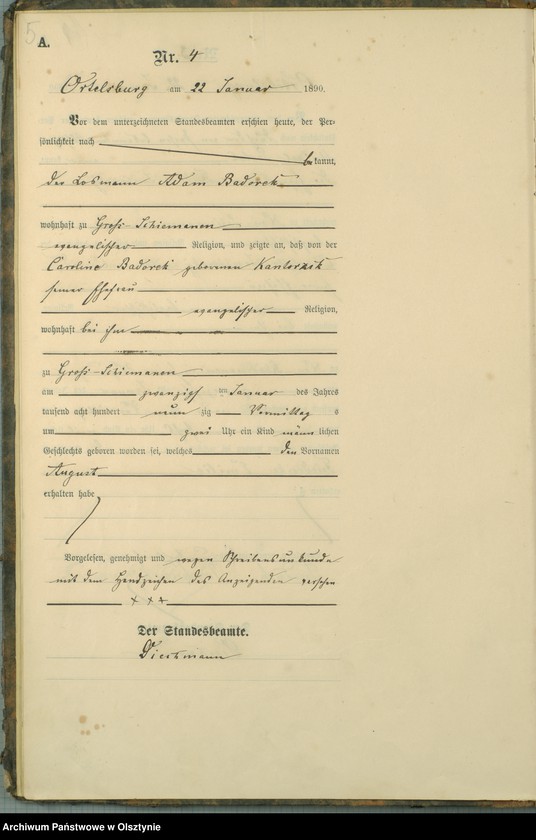 5
A.
Nr. 4
Ortelsburg am 22 Januar 1890.
Vor dem unterzeichneten Standesbeamten erschien heute, der Per-
sönlichkeit nach
bekannt,
der Losmann Adam Badorek
wohnhaft zu Groß-Schiemanen
evangelischer Religion, und zeigte an, daß von der
Caroline Badorek geborenen Kantorzik
seiner Ehefrau
evangelischer Religion,
wohnhaft bei ihm
zu Groß-Schiemanen
am zwanzigsten Januar des Jahres
tausend acht hundert neunzig Vormittags
um zwei Uhr ein Kind männlichen
Geschlechts geboren worden sei, welches den Vornamen
August
erhalten habe
Vorgelesen, genehmigt und wegen Schreibensunkunde
mit dem Handzeichen des Anzeigenden versehen
+++
Der Standesbeamte.
Archiwum Państwowe w Olsztynie